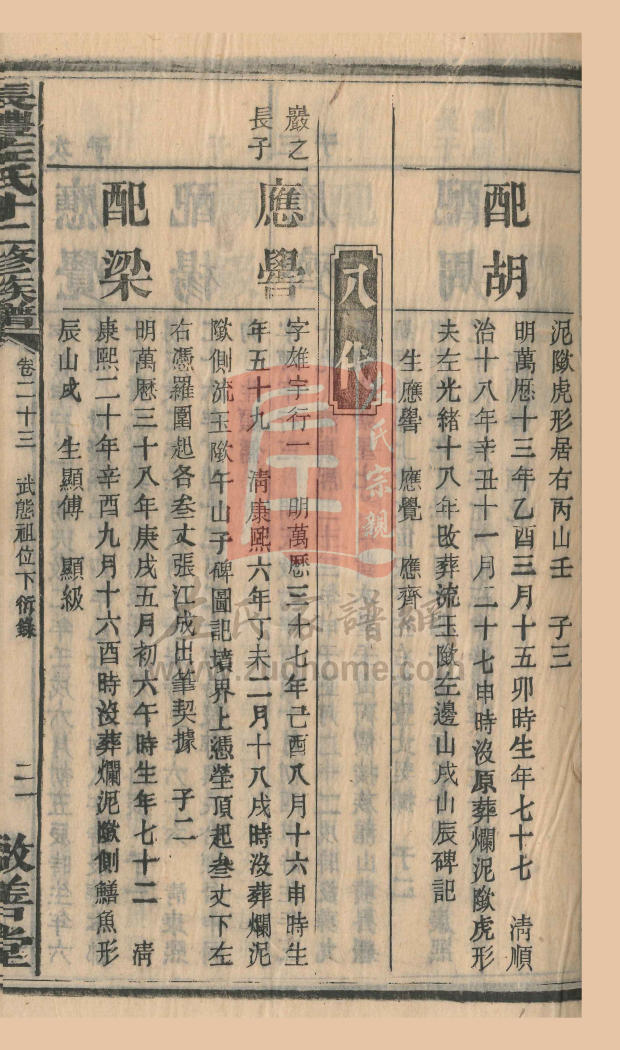 泥䧢虎形居右丙山壬　子三
配胡
明萬厯十三年乙酉三月十五卯時生年七十七　清順
治十八年辛丑十一月二十七申時沒原葬爛泥䧢虎形
夫左光緒十八年改葬流玉䧢左邊山戌山辰碑記
生應譽　應覺　應齊
八代
巖之長子
應譽
字雄宇行一　明萬厯三十七年己酉八月十六申時生
年五十九　清康熙六年丁未二月十八戌時沒葬爛泥
䧢側流玉䧢午山子碑圖記墳界上憑塋頂起叄丈下左
右憑羅圍起各叄丈張江成出筆契據　子二
配梁
明萬厯三十八年庚戌五月初六午時生年七十二　清
康熙二十年辛酉九月十六酉時沒葬爛泥䧢側鱔魚形
辰山戌　生顯傅　顯級
長澧左氏十二修族譜
卷二十三　武態祖位下衍錄
二一
敦善堂
左氏宗親
左氏家譜網
www.zuohome.com